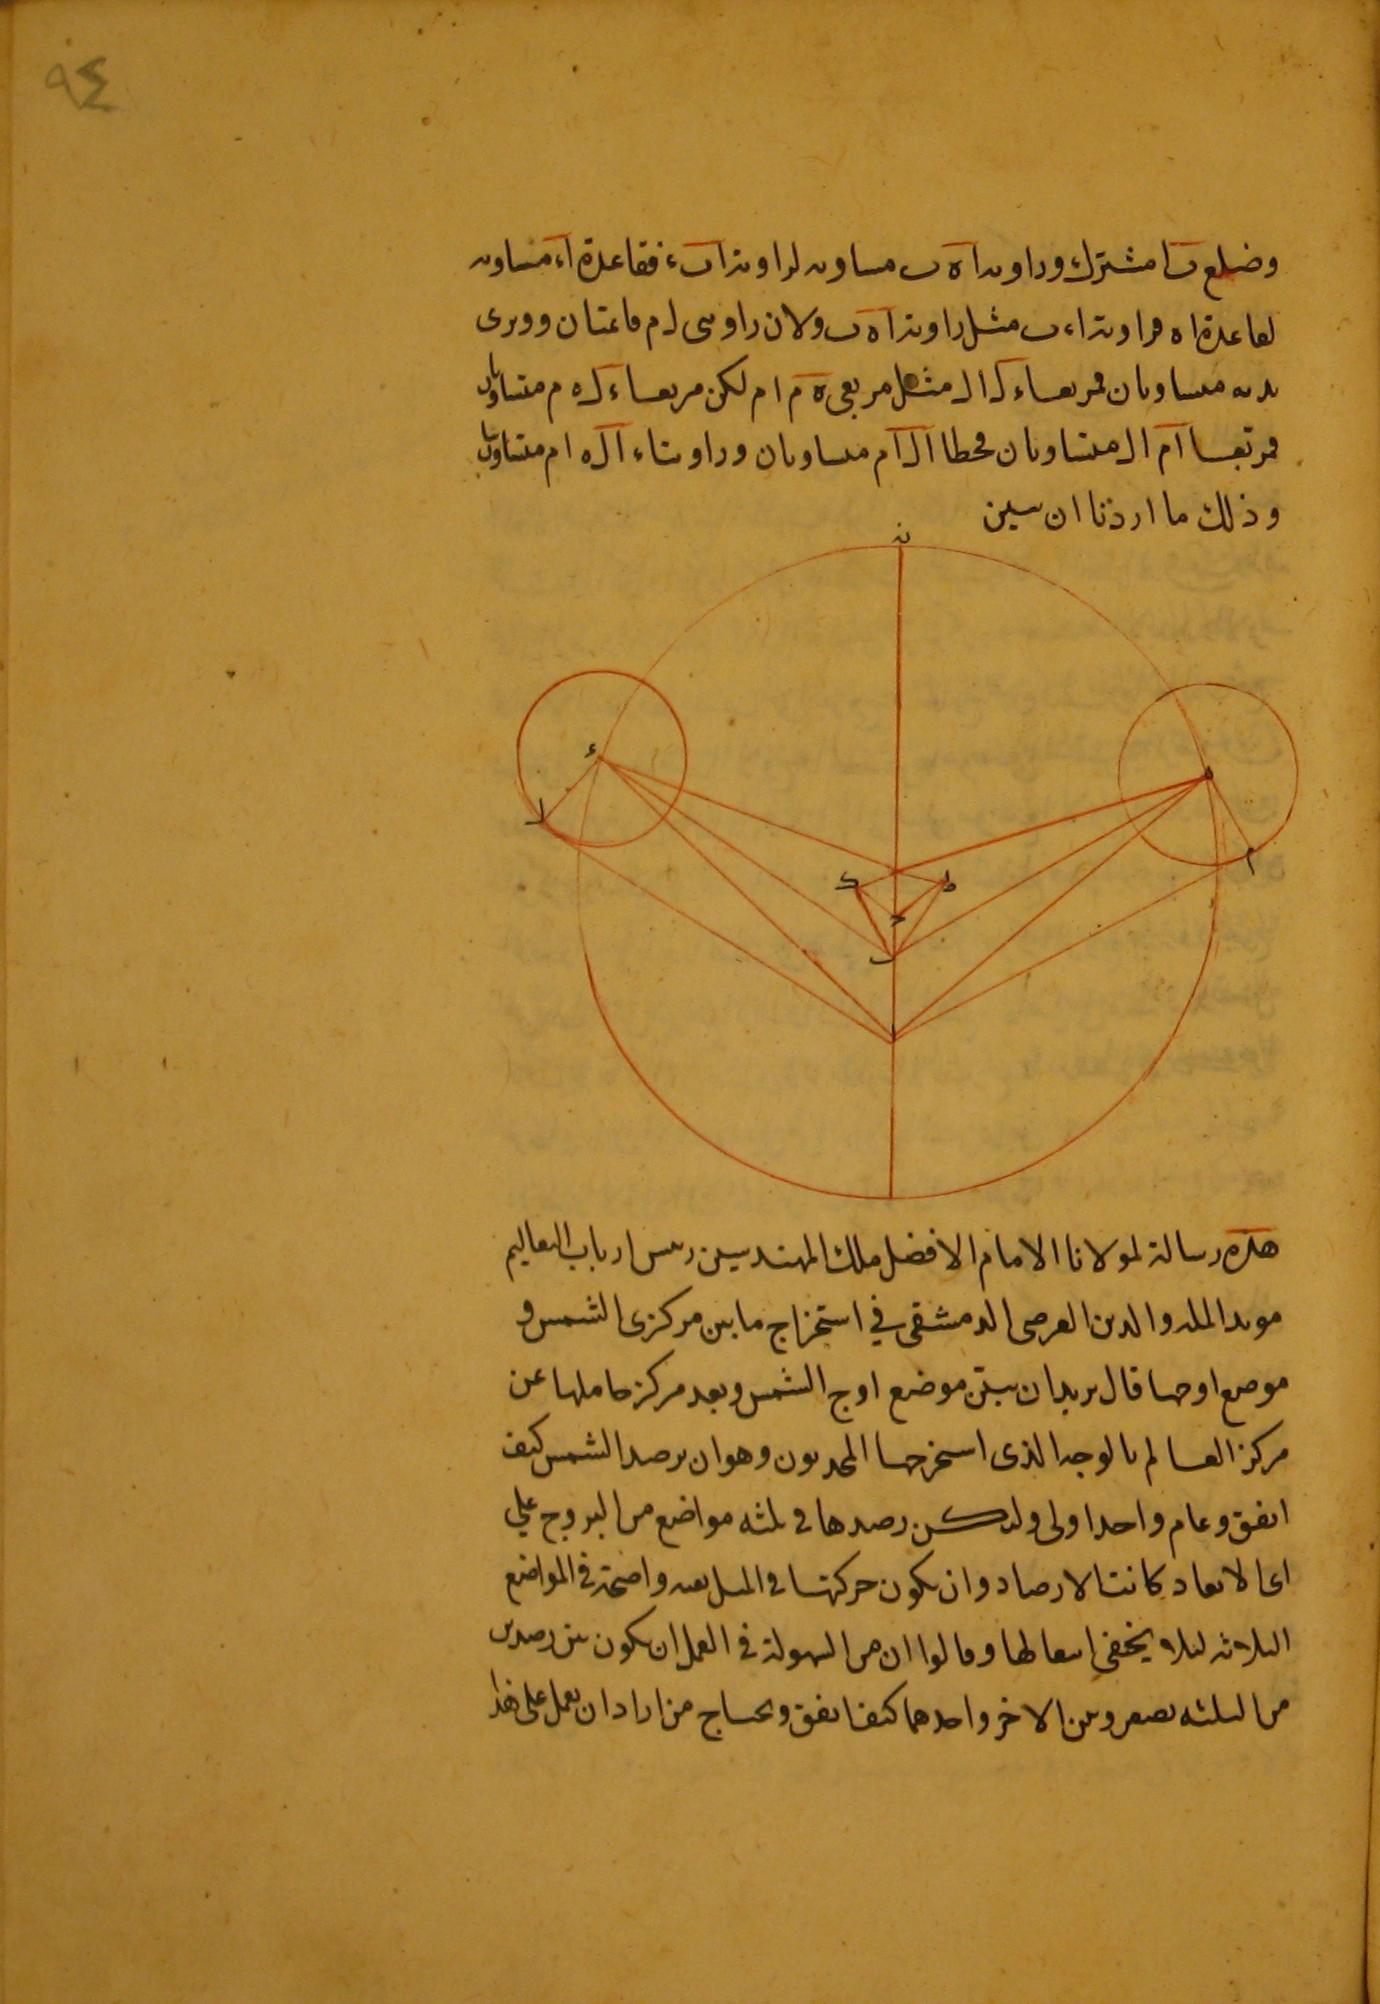 ٩٤
وضلع ب ا مشترك وزاوية ا ه ب مساوية لزاوية ا ب ء فقاعدة ا ء مساوية
لقاعدة ا ه فزاوية ا ء ب مثل زاوية ا ه ب ولان زاويتى ل م قائمتان ووترى
متساويان فمربعا ء ل ا ل مثل مربعى ه م ا م لكن مربعا ء ل ه م متساويان
فمربعا ا م ا ل متساويان فخطا ا ل ا م متساويان وزاويتا ء ا ل ه ا م متساويتان
وذلك ما اردنا ان نبين
ء
ل
ه
م
ك
ط
ح
ب
ا
هذه رسالة لمولانا الامام الافضل ملك المهندسين رئيس ارباب التعاليم
مويد المله والدين العرضى الدمشقى في استخراج ما بين مركزى الشمس و
موضع اوجها قال نريد ان نبين موضع اوج الشمس وبعد مركز حاملها عن
مركز العالم بالوجه الذى استخرجها المحدثون وهو ان نرصد الشمس كيف
اتفق وعام واحد اولى وليكن رصدها في ثلثه مواضع من البروج على
اى الابعاد كانت الارصاد وان يكون حركتها في الميل بينه واضحة في المواضع
الثلاثه لئلا يخفى انتقالها وقالوا ان من السهولة في العمل ان يكون بين رصدين
من الثلثه نصف دور وبين الاخر واحدهما كيف اتفق ويحتاج من اراد ان يعمل على هذا